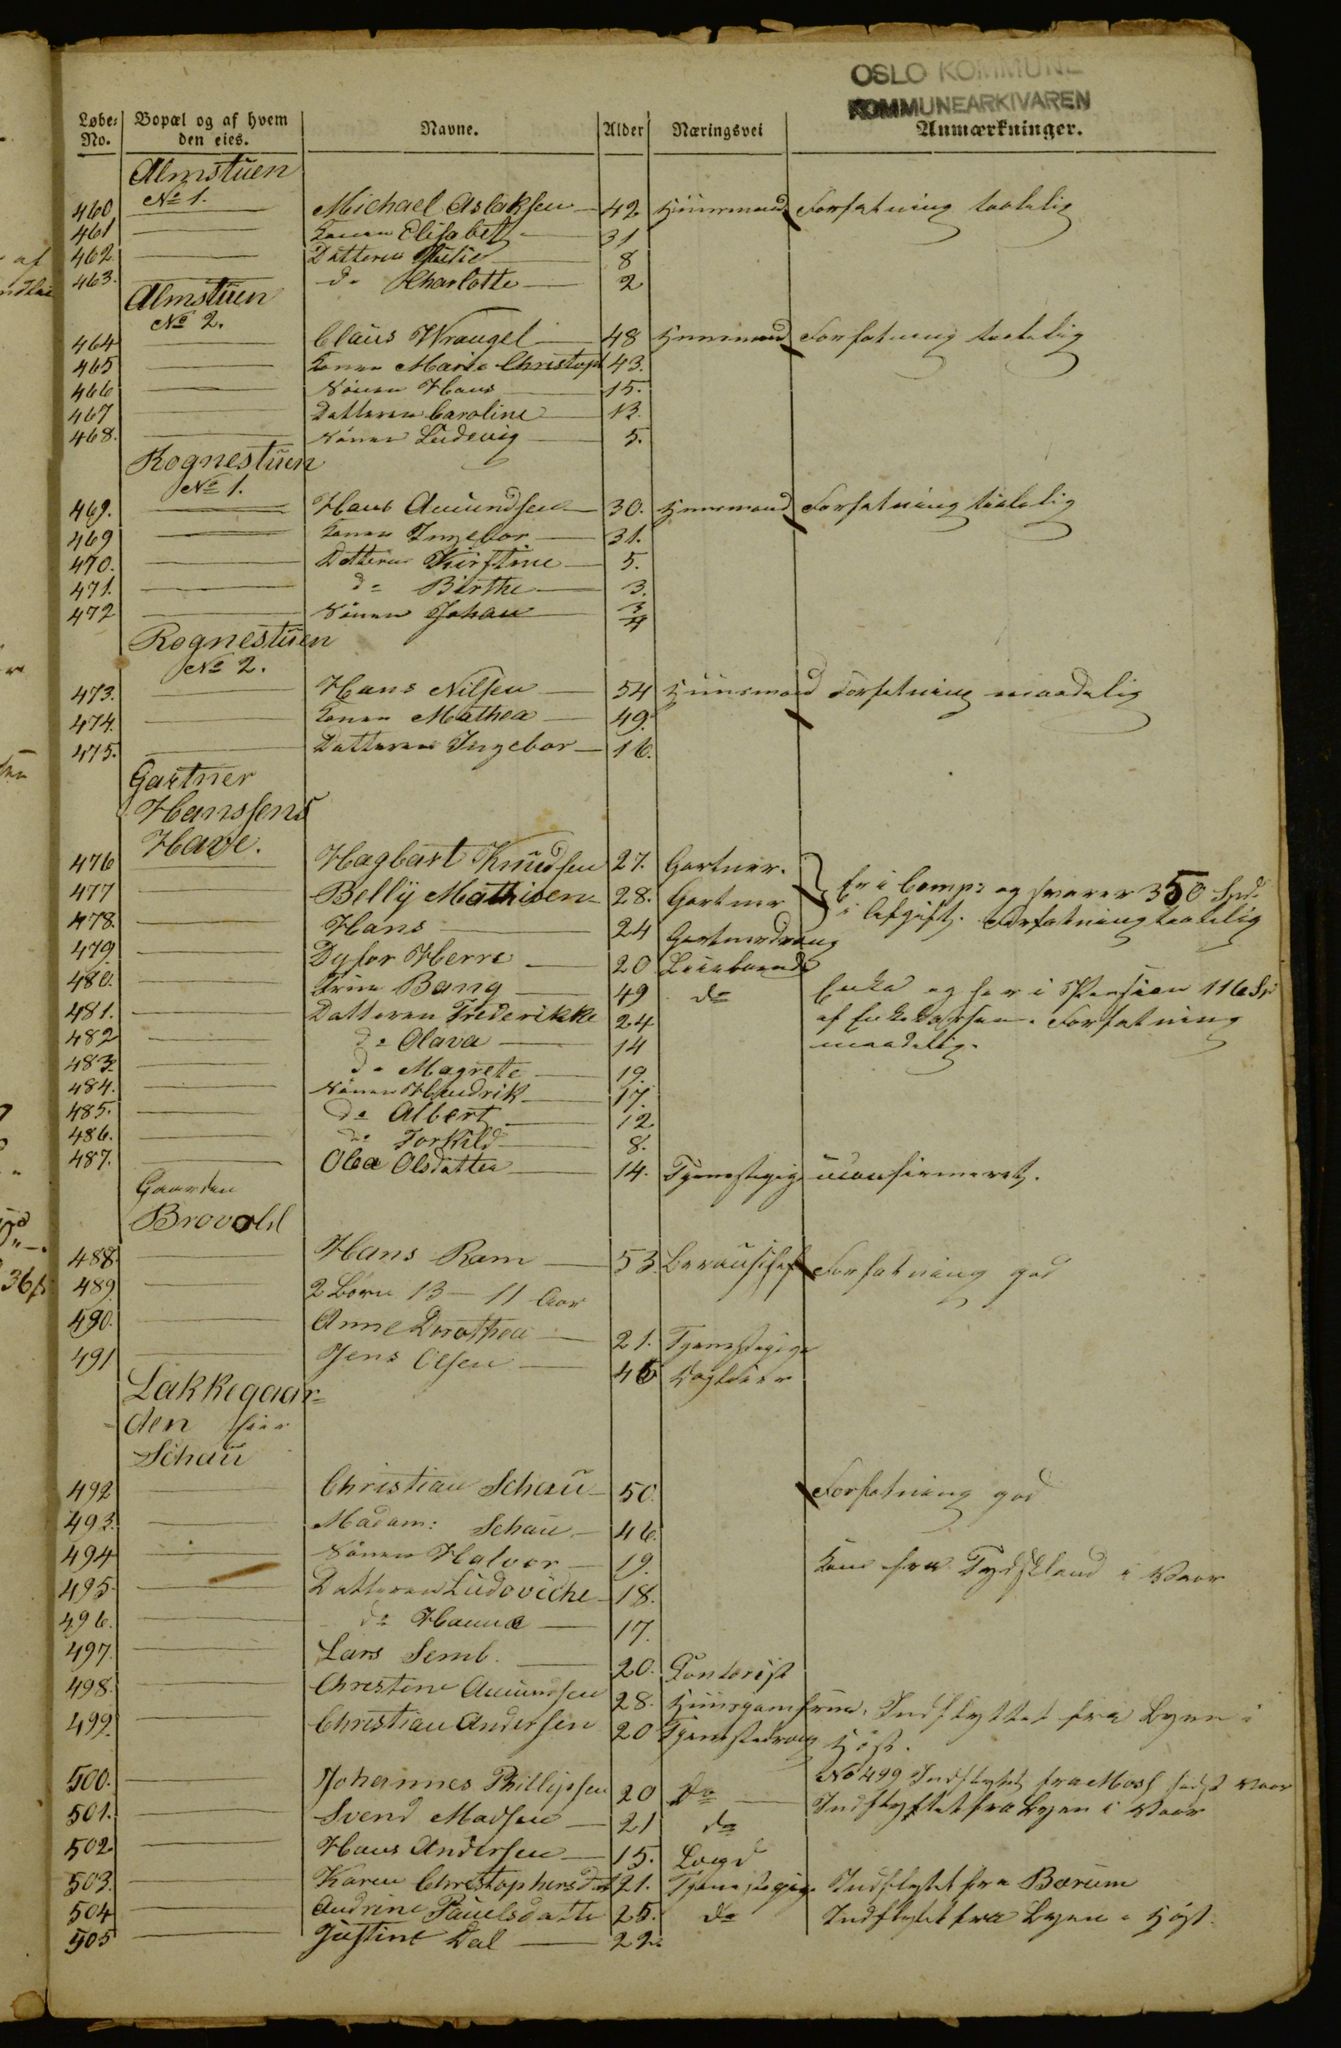 OSLO KOMMUNE
KOMMUNEARKIVAREN
Løbe- No. Bopæl og af hvem den eies. Navne. Alder Næringsvei Anmærkninger.
Almstuen
No 1.
460 Michael Aslaksen 42 Huusmand Forfatning taalelig
461 Konen Elisabet 31
462 Datteren Julie 8
463. do Charlotte 2
Almstuen
No 2.
464 Claus Wrangel 48 Huusmand Forfatning taalelig
465 Konen Marie Christoph 43.
466 Sönen Hans 15.
467 Datteren Caroline 13
468. Sönen Ludevig 5.
Rognestuen
No 1.
469. Hans Amundsen 30. Huusmand Forfatning taalelig
469 Konen Ingebor 31.
470. Datteren Kirstine 5.
471. do Birthe 3.
472 Sönen Johan 3/4
Rognestuen
No 2.
473. Hans Nilsen 54 Huusmand Forfatning maadelig
474. Konen Mathea 49.
475. Datteren Ingebor 16.
Gartner
Hanssens
Have.
476 Hagbart Knudsen 27. Gartner.
477 Belly Mathisen 28. Gartner Er i Comp: og svarer 350 Spd.
478. Hans 24 Gartnerdreng i Afgift. Forfatning taalelig
479. Herre 20 Leieboende
480. Bang 49 do Enke og har i Pension 116 Sp
481. Datteren Frederikke 24 af Enkekassen. Forfatning
482 do Olava 14 maadelig.
483. do Magrete 19.
484. Sönen Hendrik 17.
485. do Albert 12
486. do Torkild 8.
487. Olea Olsdatter 14. Tjenestepige uconfirmeret.
Gaarden
Brovold
488. Hans Ram 53. Forfatning god
489 2 Börn 13 - 11 Aar
490. Anne Dorothea 21. Tjenestepige
491 Jens Olsen 46
Lakkegaar-
den eier
Schau
492 Christian Schau 50. Forfatning god
493. Madam: Schau 46.
494 Sönen Halvor 19. Kom fra Tydskland i Vaar
495. Datteren Ludoviche 18.
496. do Hanna 17.
497. Lars Semb. 20. Contorist
498. Christine Amundsen 28. Huusjomfrue. Indflyttet fra Byen i
499. Christian Andersen 20 Tjenestedreng Höst.
No 499 Indflyttet fra Moss sidst Vaar
500. Johannes Phillipsen 20 do Indflyttet fra Byen i Vaar
501. Svend Madsen 21 do
502. Hans Andersen 15.
503. Karen Christophersdat 21. Tjenestepige Indflyttet fra Bærum
504 Andrine Paulsdatte 25. do Indflyttet fra Byen i Höst.
505 Justine Dal 22.